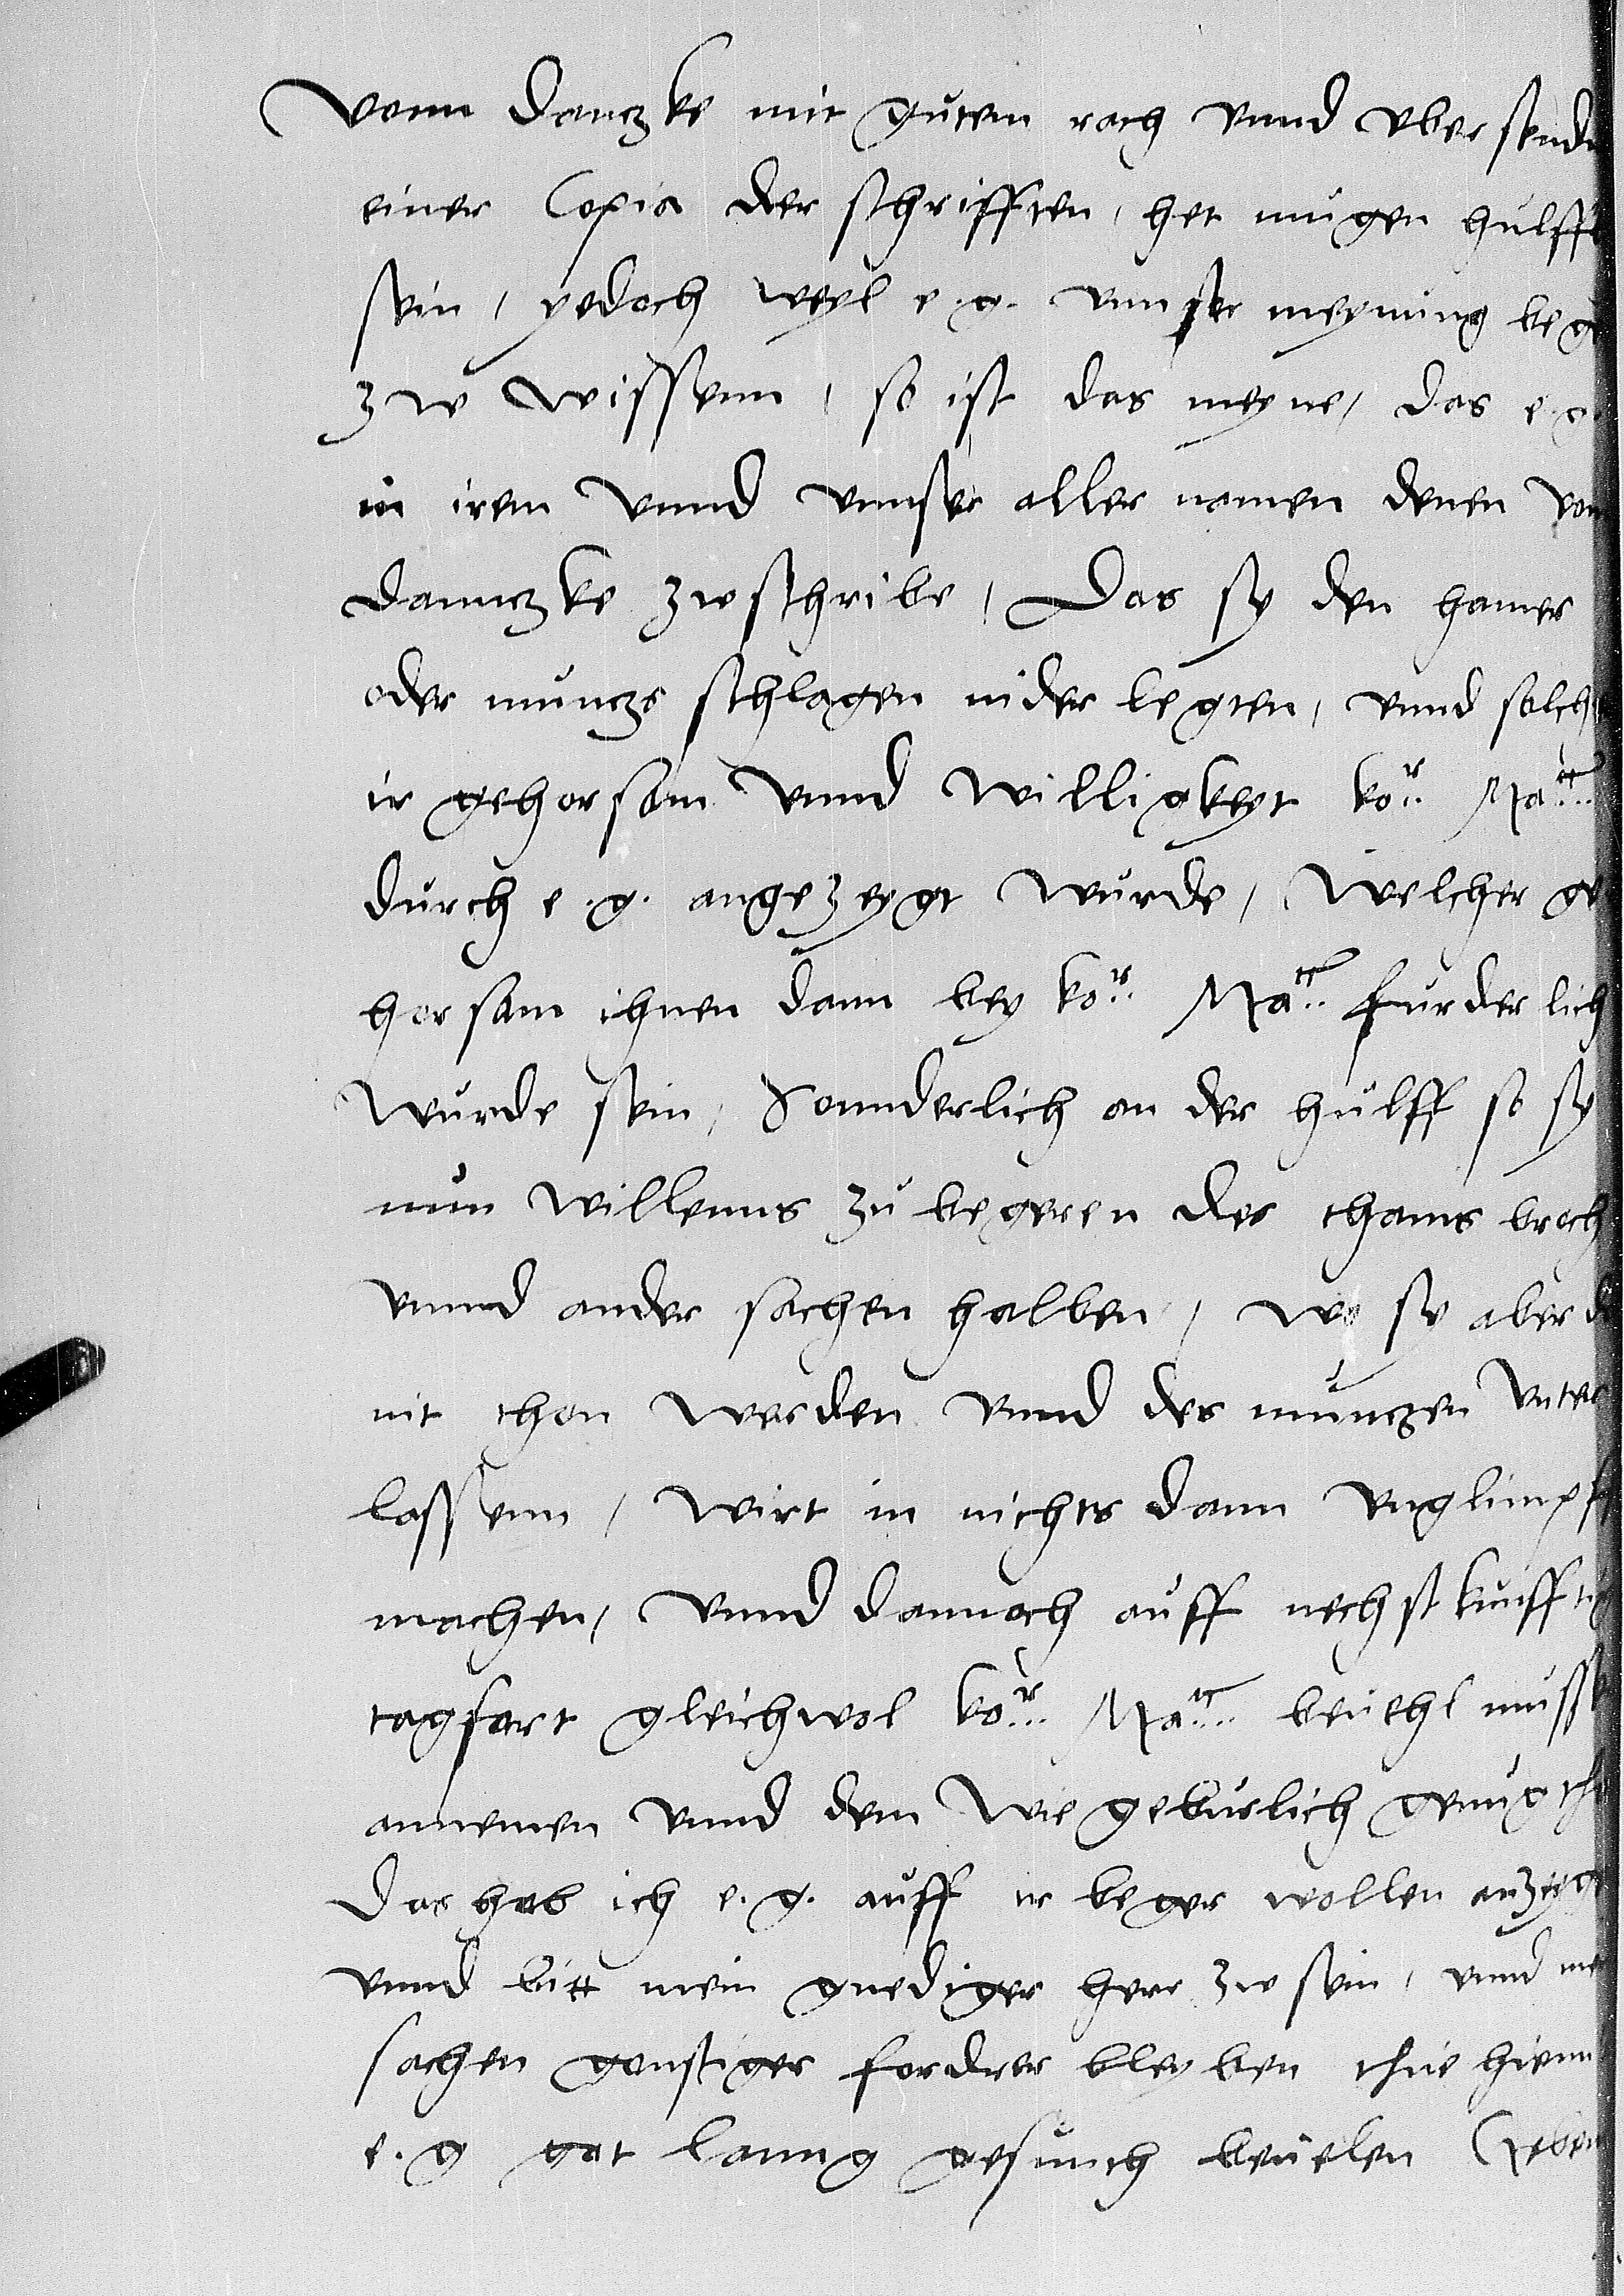 vonn Danczke mit gutem rath vnnd vbersende
einer Copia der schrifften, het mugen hulffl
sein, yedoch weyl e.g. vnnser meynung bege
zw wissenn, so ist das meyne, das e.g.
in irem vnnd vnnser aller namen denen von
Danntzke zwschribe, Das sy den hamer
oder muncze schlagen nider legten, vnnd solch
ir gehorsam vnnd willigkeyt ko^r. Ma^tt.
durch e.g. angezeygt wurde, welcher ge
horsam ihnen dann bey ko^r. Ma^tt. furderlich
wurde sein, Sonnderlich an der hulff so sy
nun willenns zu begeren des thams broch
vnnd ander sachen halben, wo sy aber d
nit thon werden vnnd des munczen vnter
lassenn, wirt in nichts dann vnglimpff
machen, vnnd dannoch auff nechstkunfftig
tagfart gleichwol ko^r. Ma^tt. beuehl muss
annemen vnnd dem wie geburlich genug th
Das hab ich e.g. auff ir beger wollen anzeyg
vnnd bitt mein gnediger herr zw sein, vnnd me
sachen gonstiger fordrer bleyben thue hienn
e.g got lanng gesunth beuelen Geben